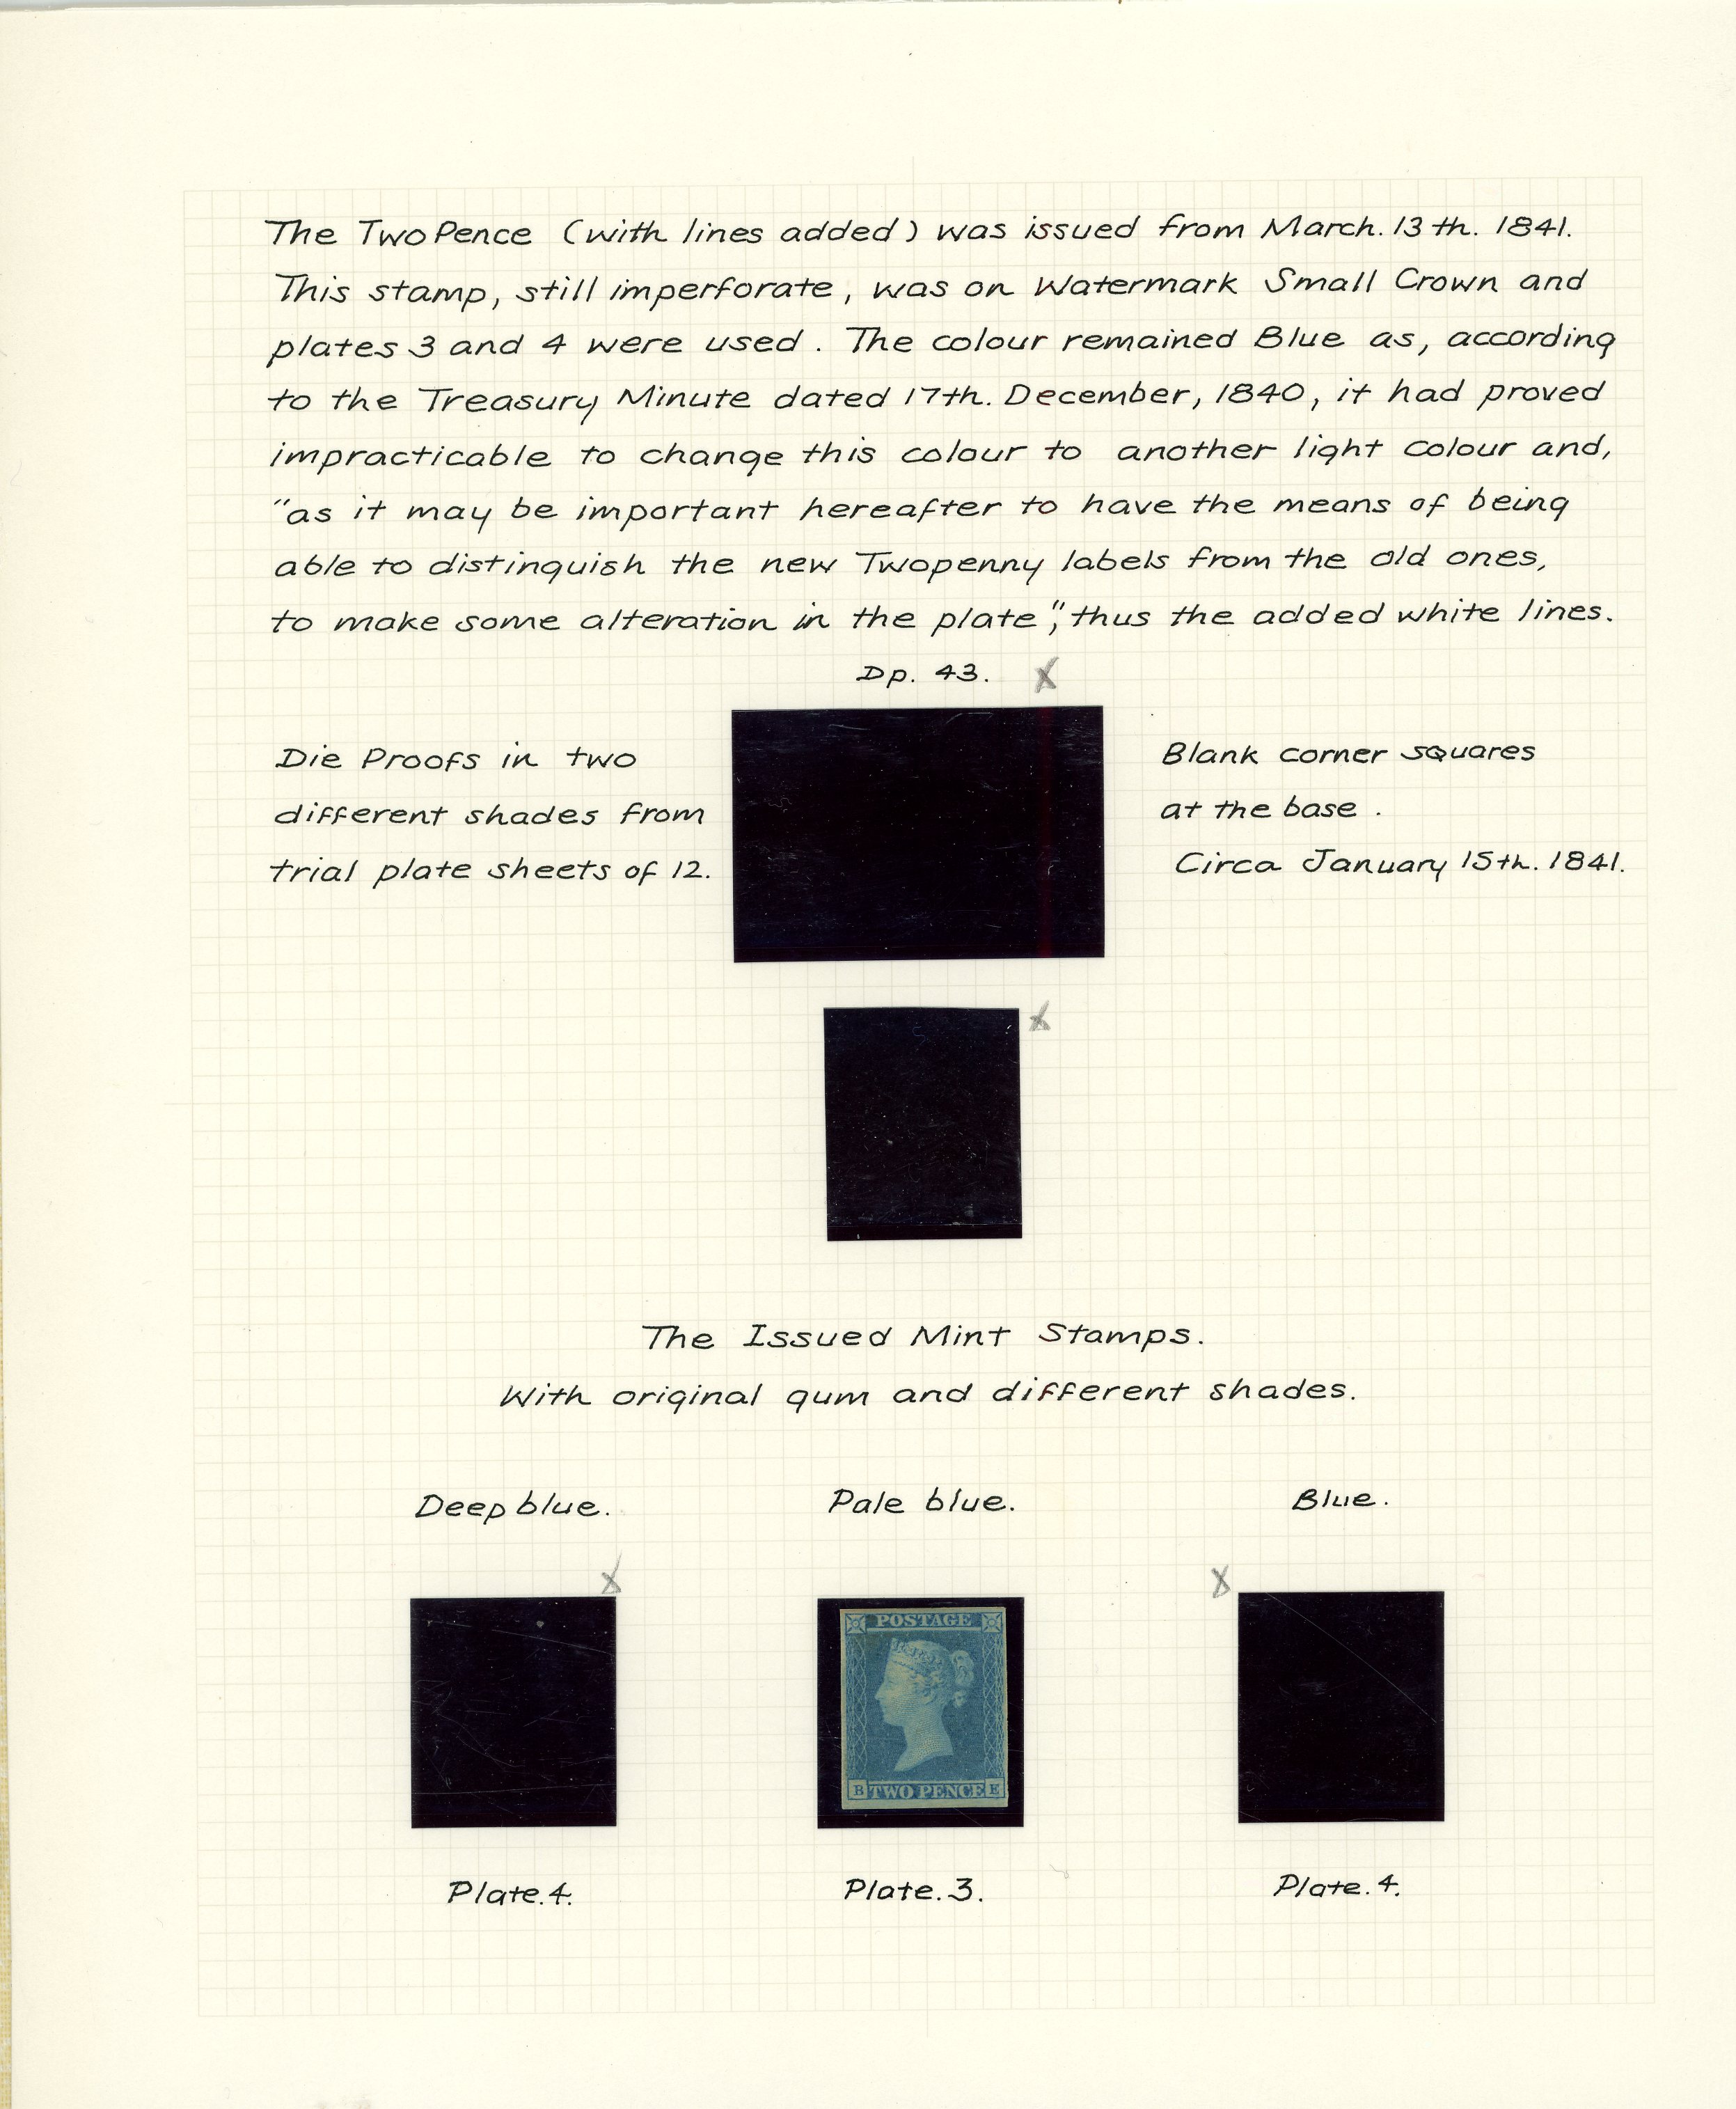 The Two Pence (with lines added) was issued from March. 13th. 1841.
This stamp, still imperforate, was on Watermark Small Crown and
plates 3 and 4 were used. The colour remained Blue as, according
to the Treasury Minute dated 17th. December, 1840, it had proved
impracticable to change this colour to another light colour and,
"as it may be important hereafter to have the means of being
able to distinguish the new Twopenny labels from the old ones,
to make some alteration in the plate", thus the added white lines.
Dp. 43. X
Die Proofs in two
different shades from
trial plate sheets of 12.
Blank corner squares
at the base.
Circa January 15th. 1841.
X
The Issued Mint Stamps.
With original gum and different shades.
Deep blue.
Pale blue.
Blue.
X
X
POSTAGE
B TWO PENCE E
Plate. 4.
Plate. 3.
Plate. 4.